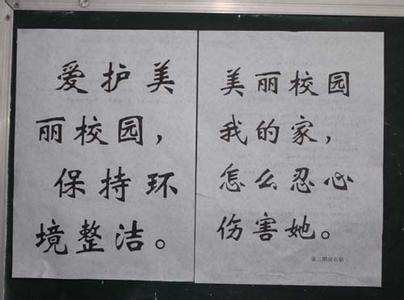 爱护美
丽校园，
保持环
境整洁。
美丽校园
我的家，
怎么忍心
伤害她。